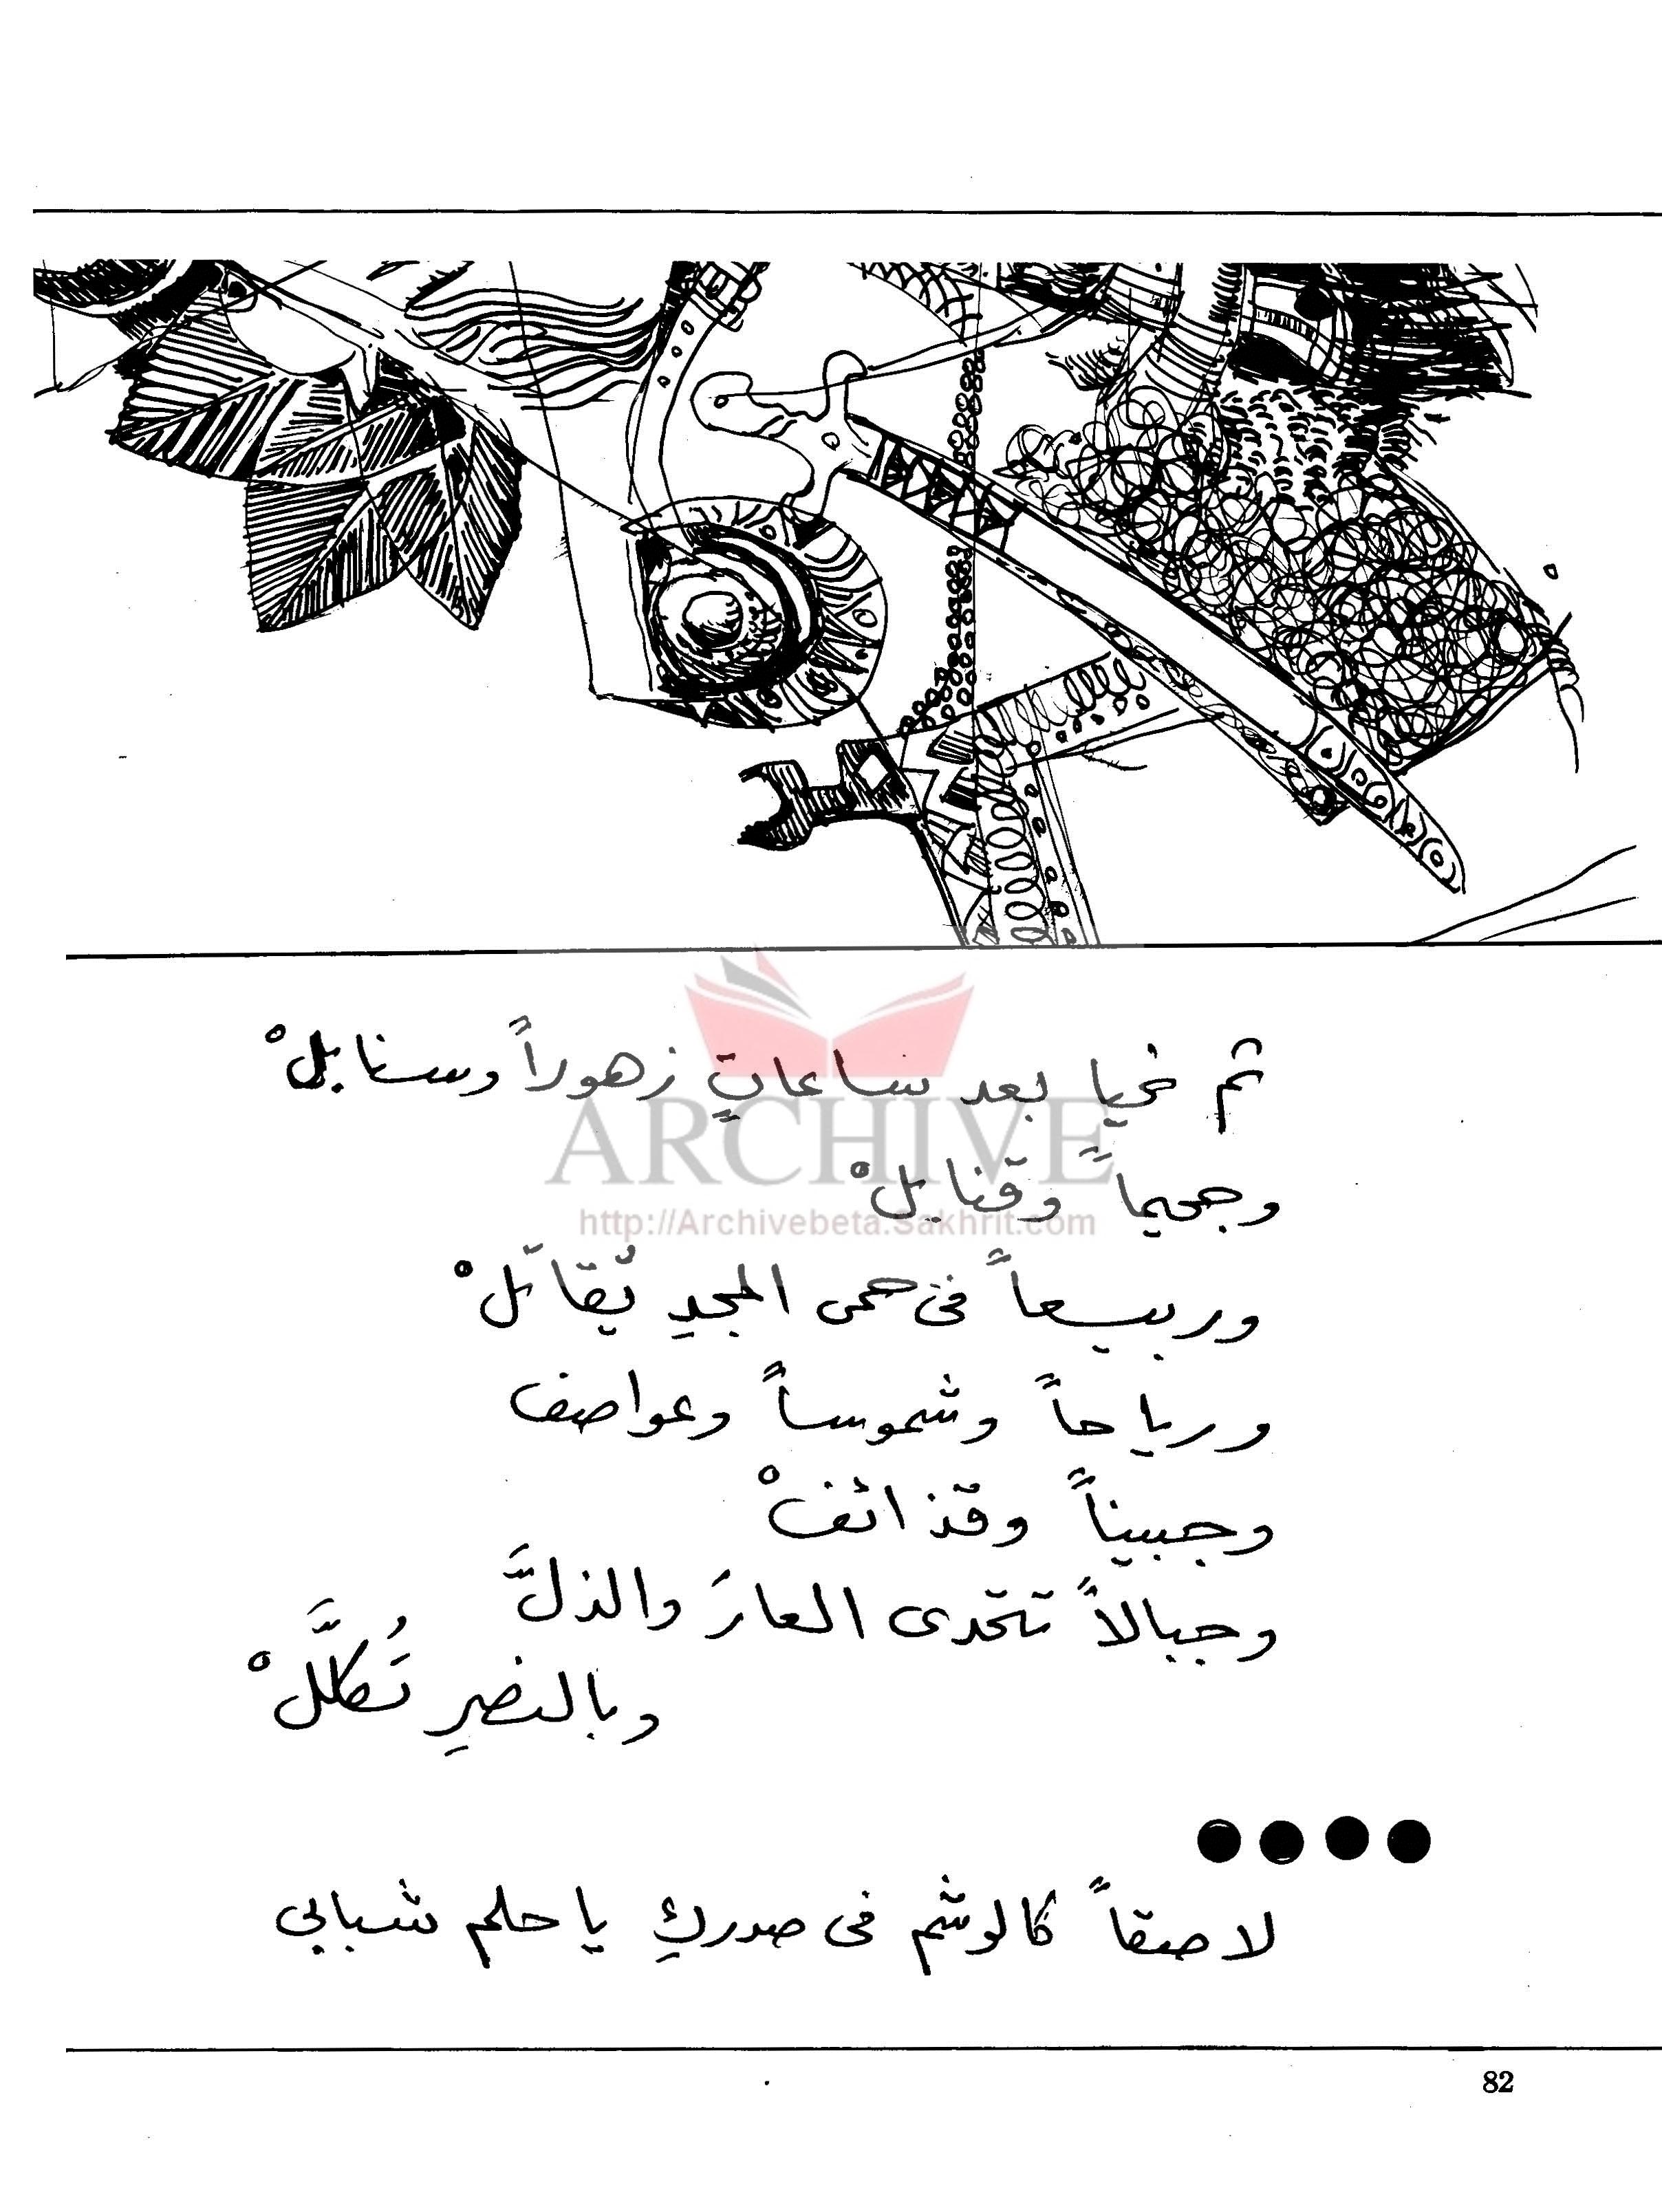 ثم نحيا بعد ساعاتٍ زهوراً وسنابلْ
وجحيماً وقنابلْ
وربيعاً فى حمى المجدِ يُقاتلْ
ورياحاً وشموساً وعواصف
وجبيناً وقذائفْ
وجبالاً تتحدى العارَ والذلَّ
وبالنصرِ تُكلَّلْ
لاصقاً كالوشم فى صدركِ يا حلم شبابى
ARCHIVE
http://Archivebeta.Sakhrit.com
82